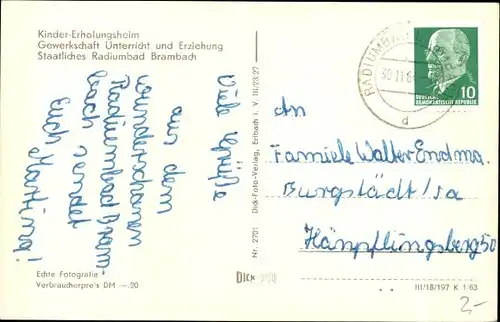 Kinder-Erholungsheim
Gewerkschaft Unterricht und Erziehung
Staatliches Radiumbad Brambach
Viele Grüße
aus dem
wunderschönen
Radiumbad Bram-
bach sendet
Euch Martina!
Echte Fotografie
Verbraucherpreis DM —.20
Nr. 2701 Dick-Foto-Verlag, Erlbach i. V. III/23/27
Dick
RADIUMBA
30.11.6
d
10
DEUTSCHE
DEMOKRATISCHE REPUBLIK
An
Famiele Walter Endma.
Burgstädt/sa
Hämpflingsberg 50
III/18/197 K 1/63
2,-